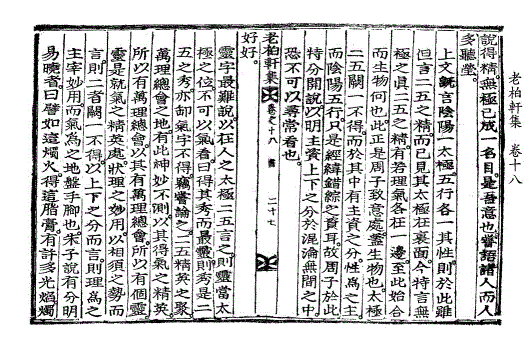 老柏軒集 卷十八
說得精無極已成一名目是吾意也嘗語諸人而人
多聽瑩
上文旣言陰陽一太極五行各一其性則於此雖
但言二五之精而已見其太極在裏面今特言無
極之眞二五之精有若理氣各在一邊至此始合
而生物何也此正是周子致意處盖生物也太極
二五闕一不得而於其中有主資之分性爲之主
而陰陽五行只是經緯錯綜之資耳故周子於此
特分開說以明主資上下之分於混淪無間之中
恐不可以尋常看也
老柏軒集 卷之十八 書 二十七
好好
靈字最難說以在人之太極二五言之則靈當太
極之位不可以氣看曰得其秀而最靈則秀是二
五之秀亦卸氣字不得竊嘗論之二五精英之聚
所以有萬理總會之地有此紳妙不測以其得氣之精英
所以有萬理總會以其有萬理總會所以有個靈
靈是就氣之精英處狀理之妙用以相須之勢而
言則二者闕一不得以上下之分而言則理爲之
主宰妙用而氣爲之地盤手脚也朱子說有分明
易曉者曰譬如這燭火得這脂膏有許多光焰燭